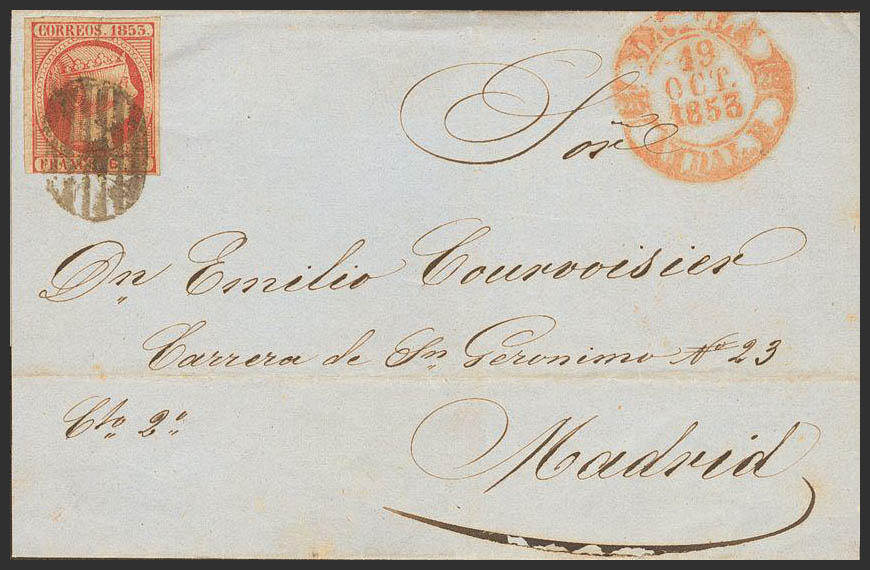 CORREOS. 1853.
19
OCT.
1853
Sor
Dn Emilio Courvoisier
Carrera de Sn Geronimo No 23
Cto 2o
Madrid